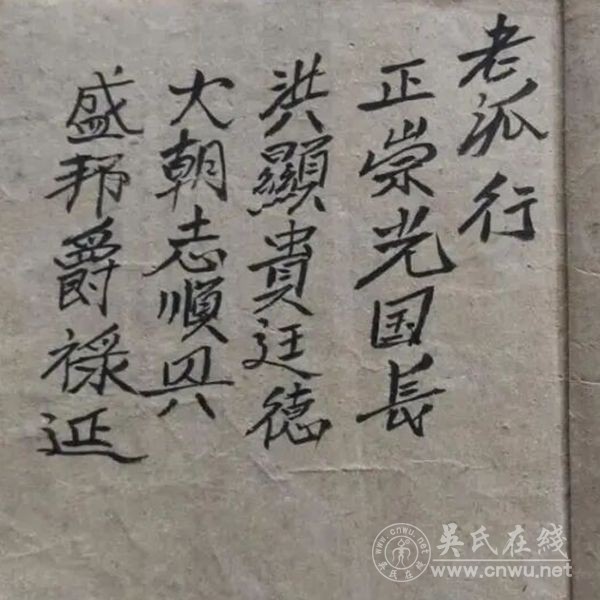 老派行
正崇光国長
洪顯貴廷德
大朝志順興
盛邦爵禄延
吴氏在线
www.cnwu.net